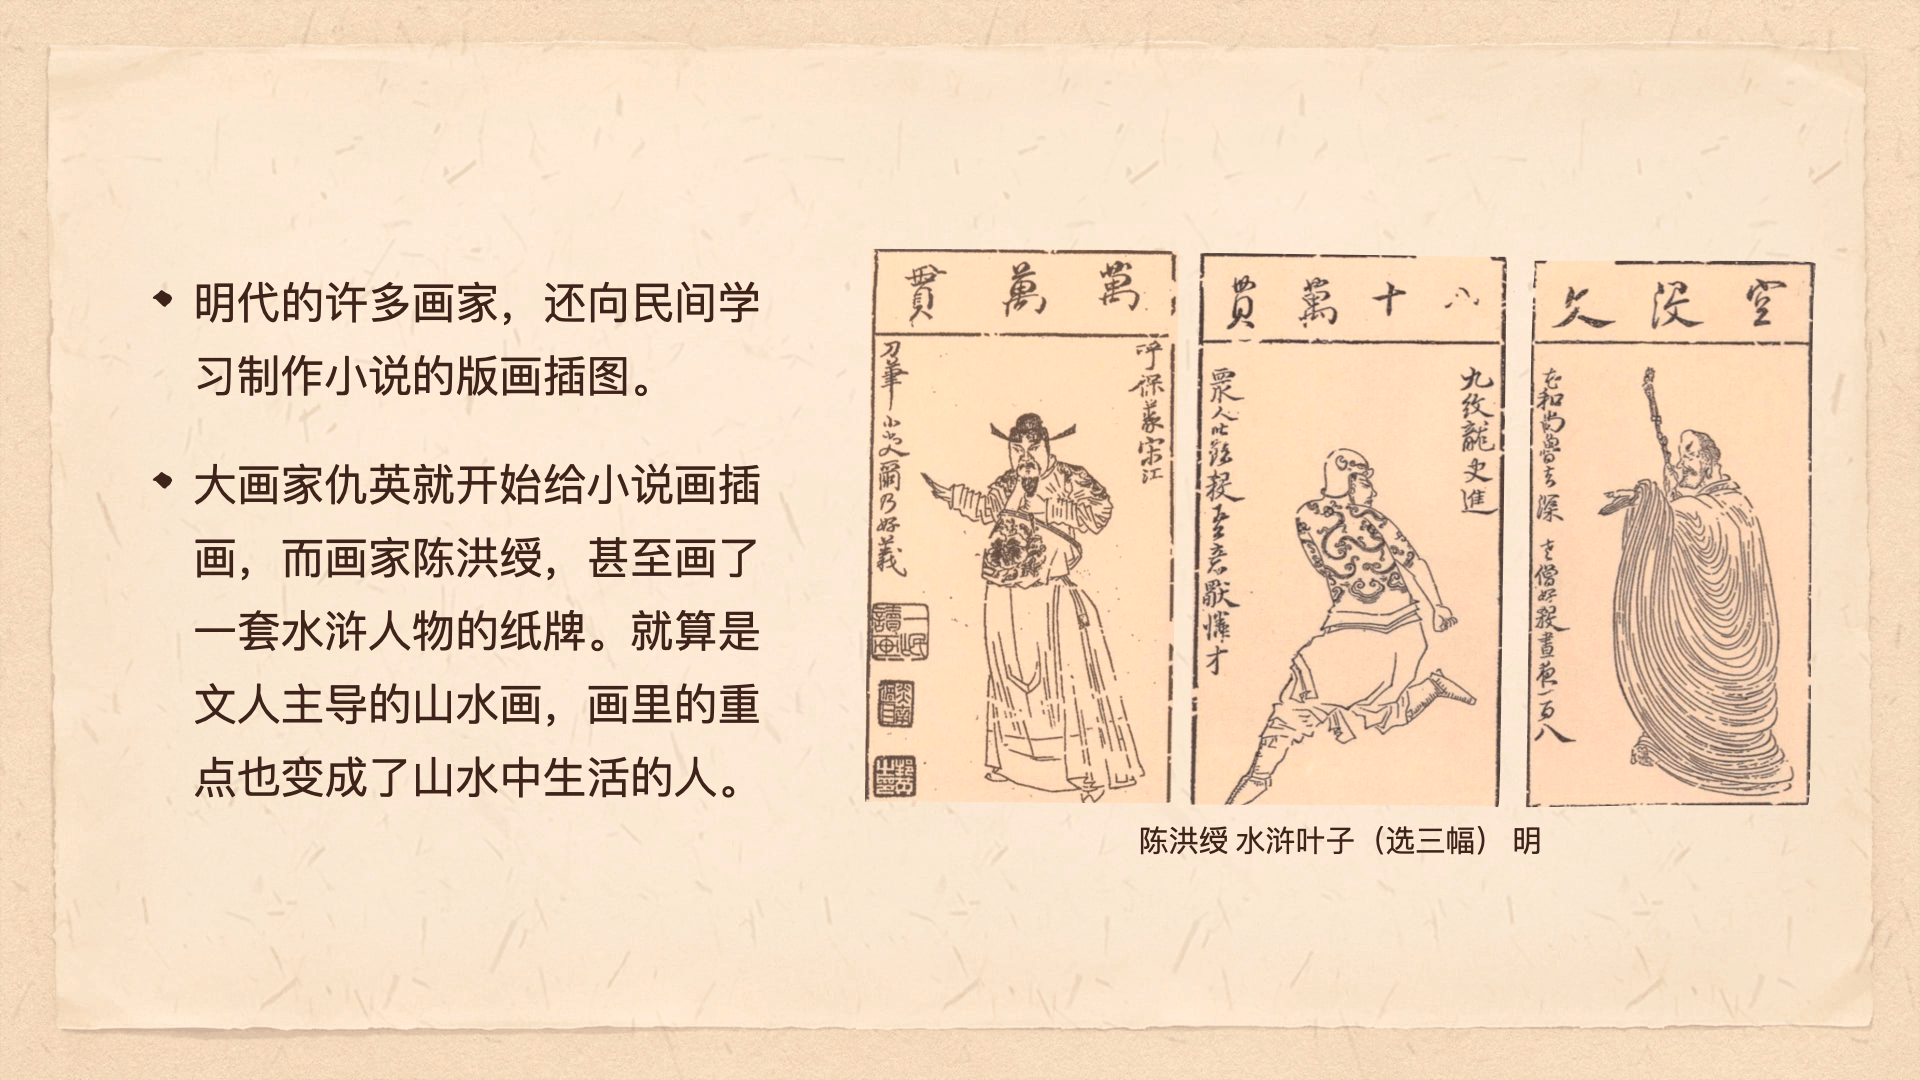 明代的许多画家，还向民间学
习制作小说的版画插图。
大画家仇英就开始给小说画插
画，而画家陈洪绶，甚至画了
一套水浒人物的纸牌。就算是
文人主导的山水画，画里的重
点也变成了山水中生活的人。
萬萬貫
呼保義宋江
刀筆小吏爾乃好義
八十萬貫
九紋龍史進
衆人
空沒文
花和尚魯智深
老僧好殺晝夜一百八
陈洪绶 水浒叶子（选三幅） 明